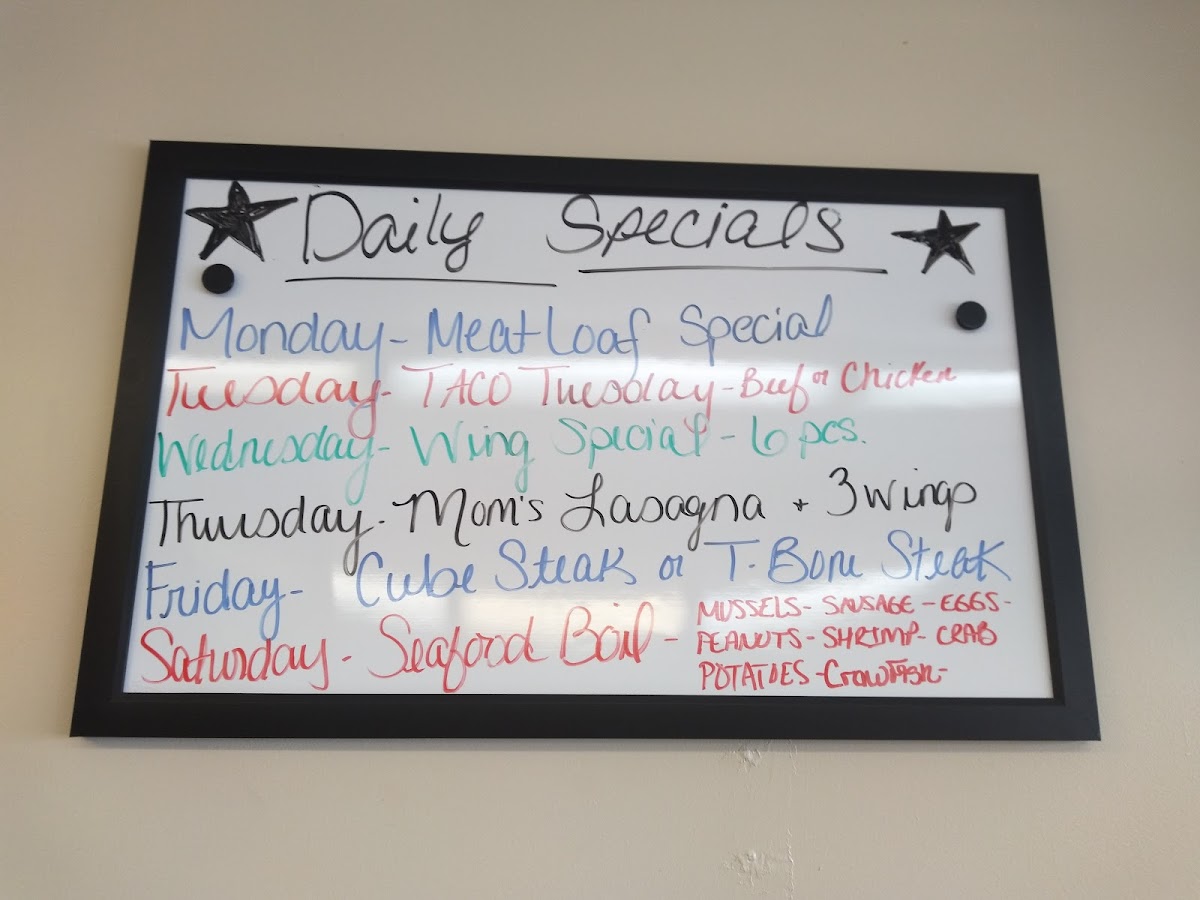 Daily Specials
Monday - Meatloaf Special
Tuesday - TACO Tuesday - Beef or Chicken
Wednesday - Wing Special - 6 pcs.
Thursday - Mom's Lasagna + 3 wings
Friday - Cube Steak or T-Bone Steak
Saturday - Seafood Boil -
MUSSELS - SAUSAGE - EGGS -
PEANUTS - SHRIMP - CRAB
POTATOES - Crawfish -